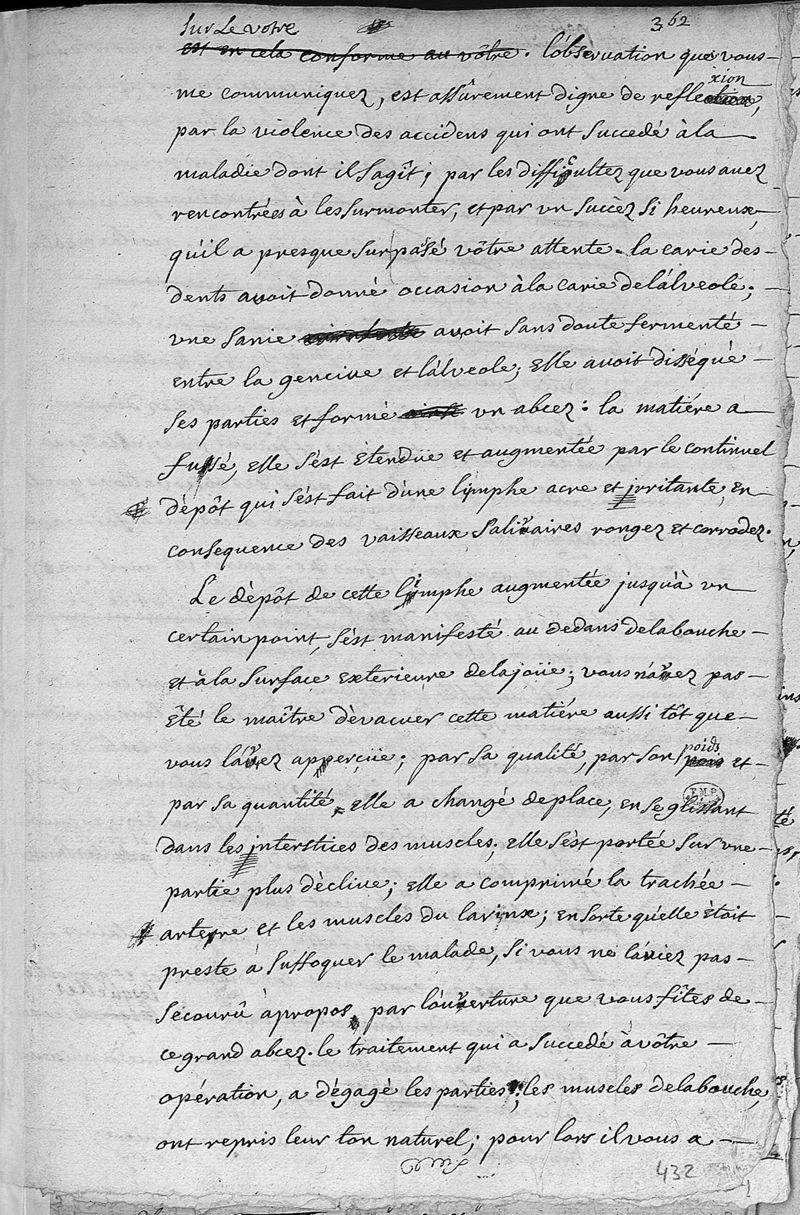 362
Sur Le votre
est en cela conforme au vôtre. l'observation que vous
me communiquez, est assûrement digne de reflexion,
par la violence des accidens qui ont succedé à la
maladie dont il s'agît; par les difficultez que vous avez
rencontrées à les surmonter, et par un succèz si heureux,
qu'il a presque surpassé vôtre attente. la carie des
dents avoit donné occasion à la carie de l'alveole;
une sanie avoit sans doute fermenté
entre la gencive et l'alveole; elle avoit disséqué
ses parties et formé ainsi un abcez: la matiére a
fusé, elle s'est etendüe et augmentée par le continuel
dépôt qui s'est fait d'une limphe acre et irritante, en
consequence des vaisseaux salivaires rongez et corrodez.
Le dépôt de cette limphe augmentée jusqu'à un
certain point, s'est manifesté au dedans de la bouche
et à la surface exterieure de la joüe; vous n'avez pas
été le maître d'evacuer cette matiére aussi tôt que
vous l'avez apperçüe; par sa qualité, par son poids et
par sa quantité, elle a changé de place, en se glissant
dans les interstices des muscles; elle s'est portée sur une
partie plus déclive; elle a comprimé la trachée
artere et les muscles du larinx; en sorte qu'elle étoit
preste à suffoquer le malade, si vous ne l'aviez pas
sécourû à propos par l'ouverture que vous fîtes de
ce grand abcez. le traitement qui a succedé à vôtre
opération, a dégagé les parties; les muscles de la bouche,
ont repris leur ton naturel; pour lors il vous a
432